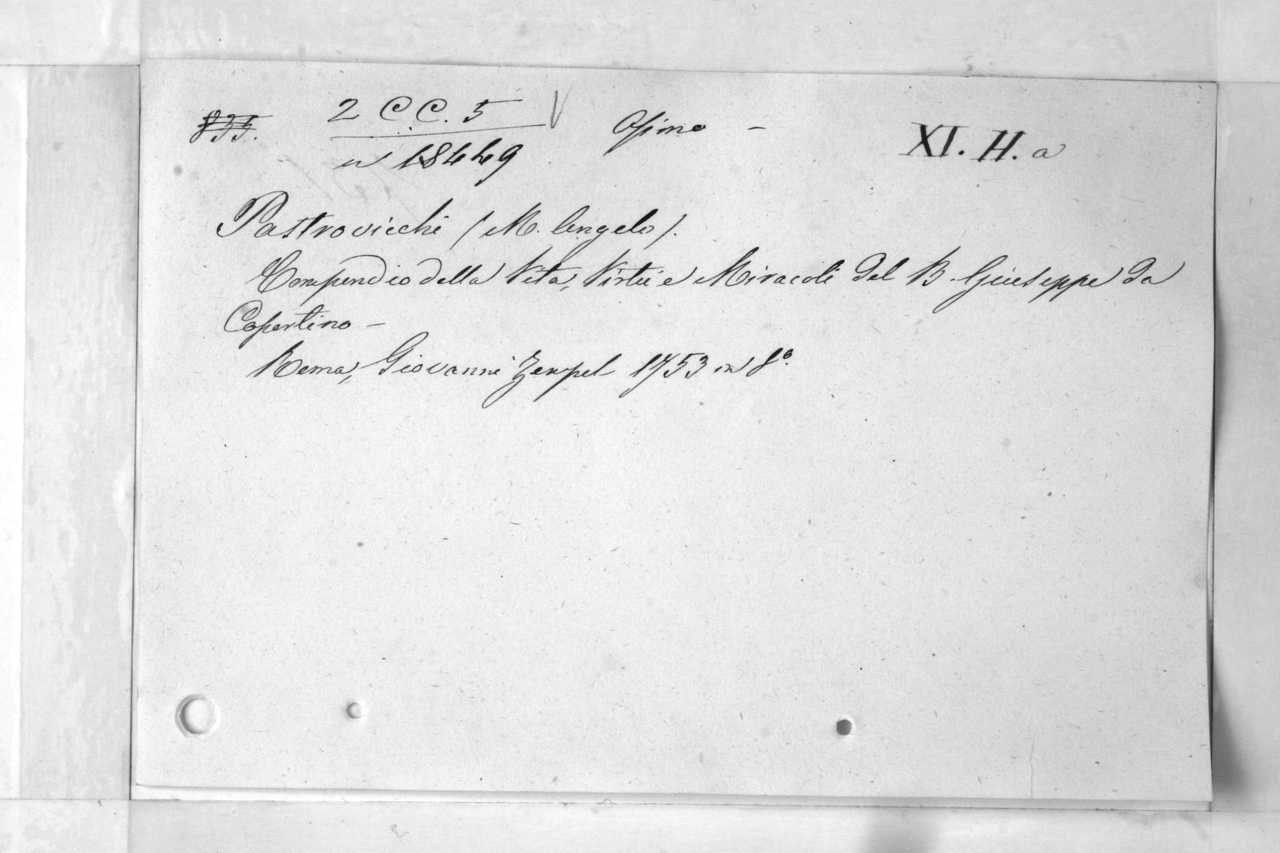 835. 2 C.C. 5 Osimo - XI. H. a
n 18449
Pastrovicchi (M. Angelo).
Compendio della Vita, Virtù e Miracoli del B. Giuseppe da
Copertino -
Roma, Giovanni Zempel 1753 in 8°.